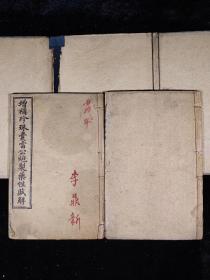 增補珍珠囊雷公炮製藥性賦解
李鼎新